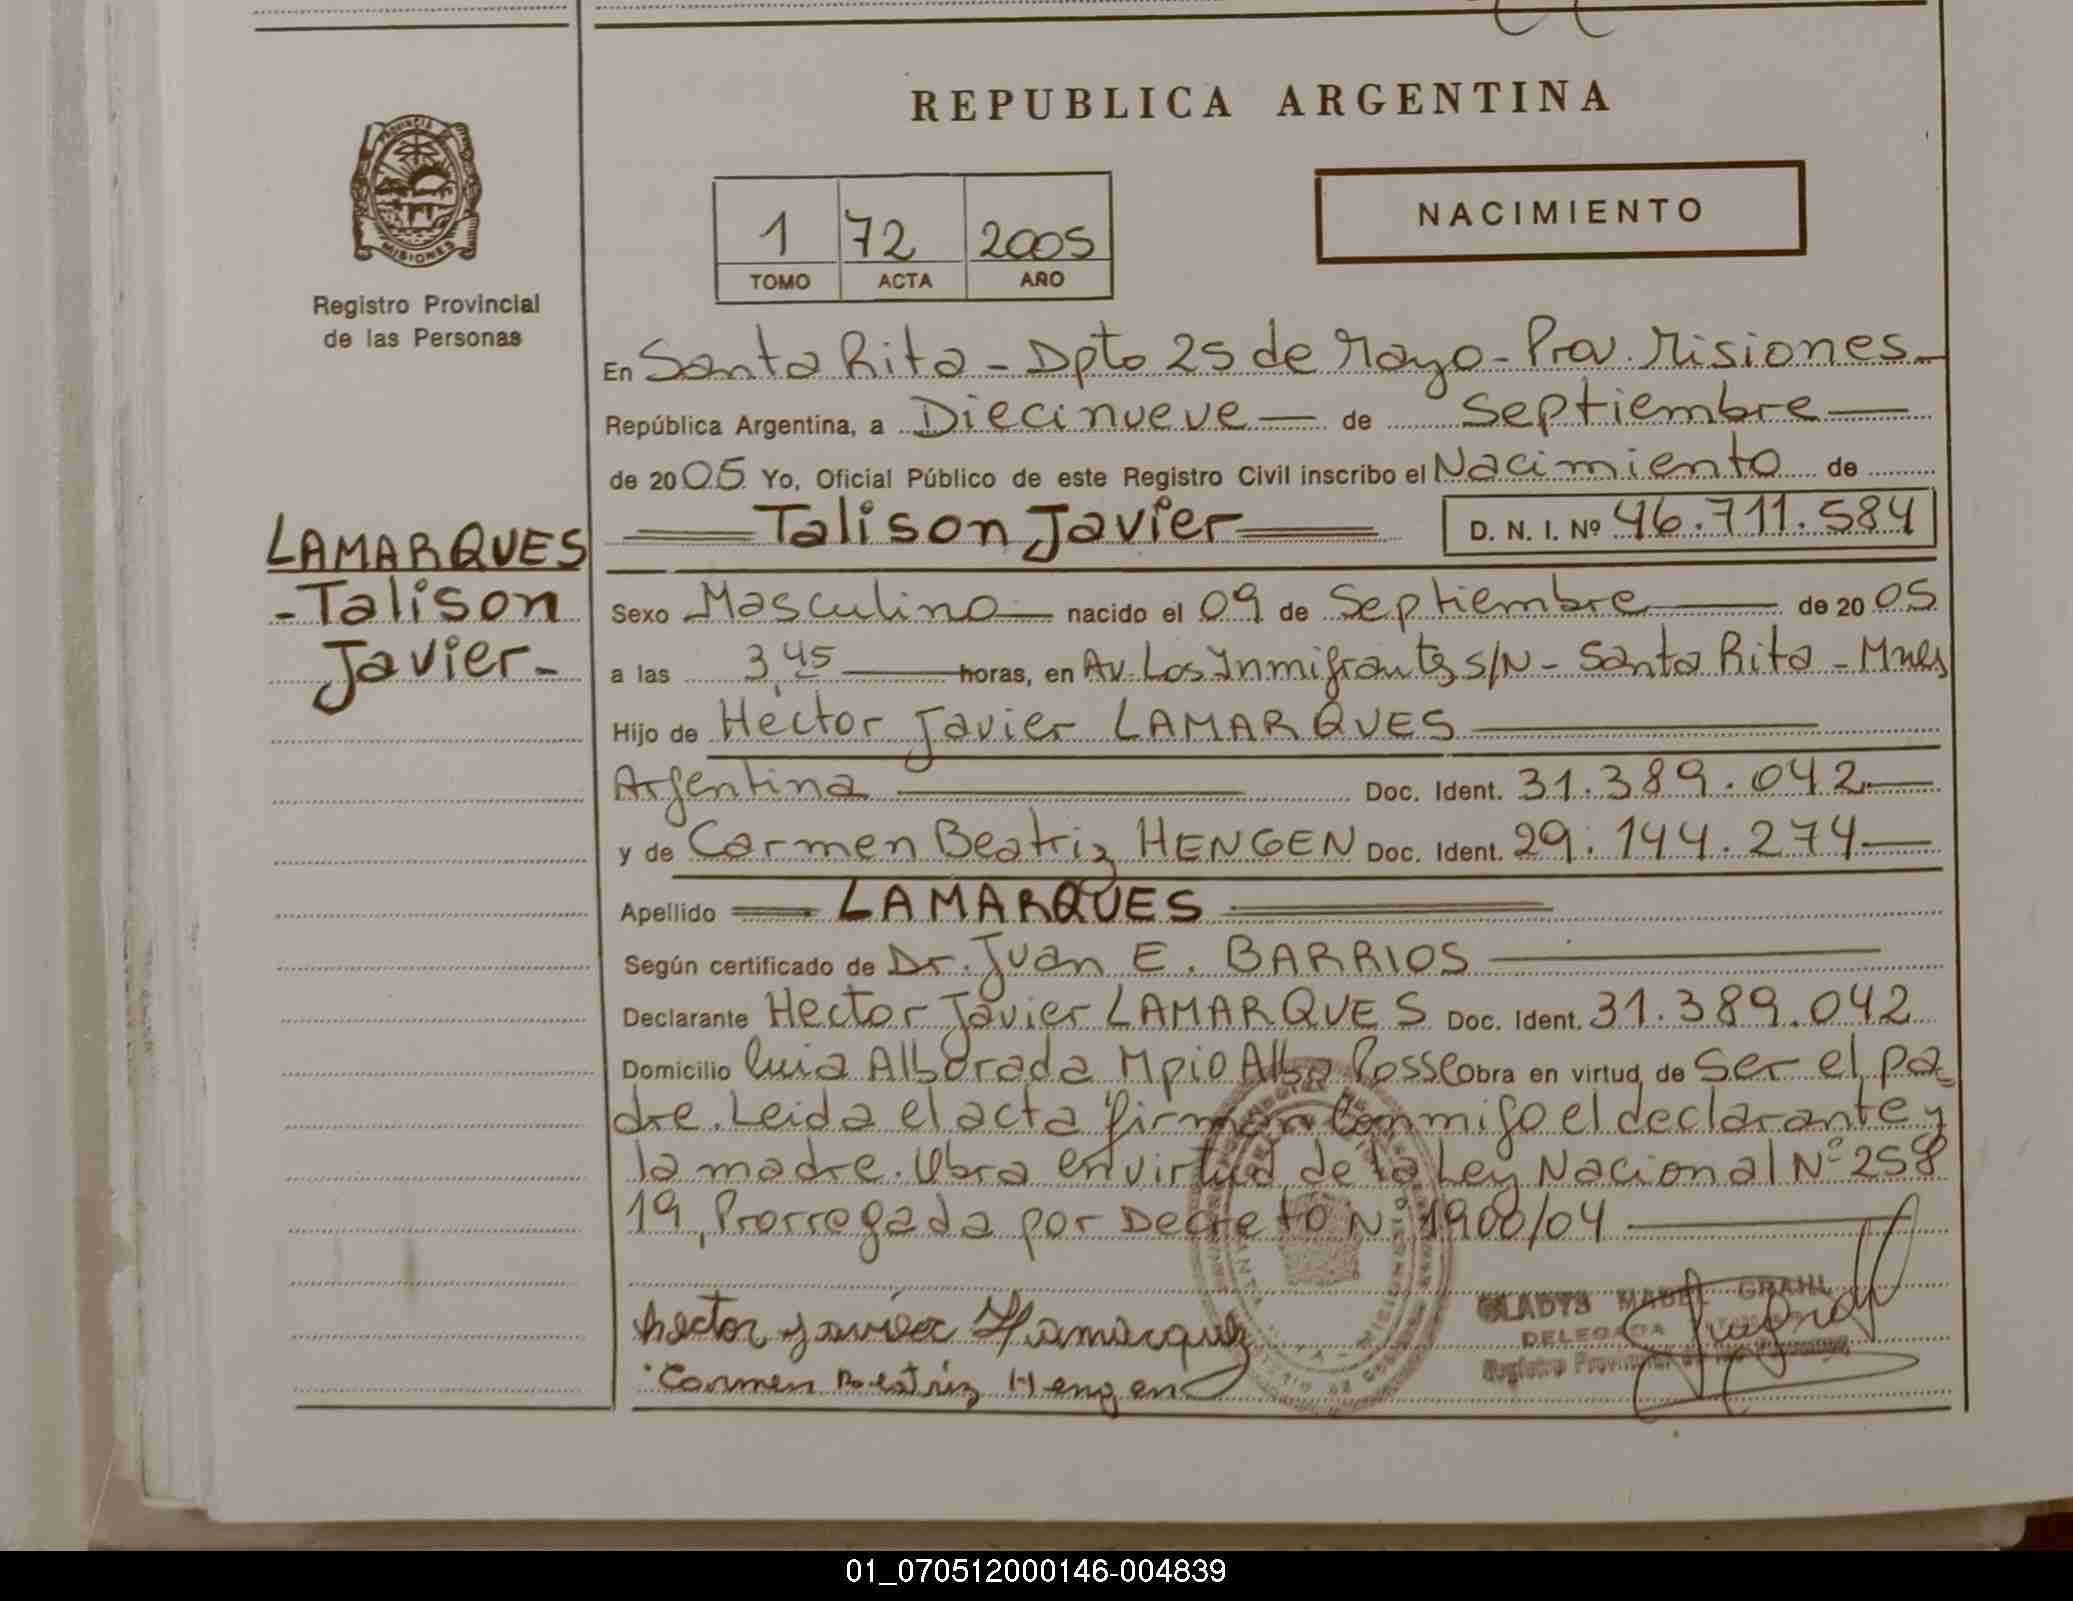 REPUBLICA ARGENTINA
PROVINCIA DE
MISIONES
Registro Provincial
de las Personas
1 72 2005
TOMO ACTA AÑO
NACIMIENTO
En Santa Rita - Dpto 25 de Mayo - Prov. Misiones
República Argentina, a Diecinueve de Septiembre
de 2005 Yo, Oficial Público de este Registro Civil inscribo el Nacimiento de
LAMARQUES
- Talison
Javier -
Talison Javier D. N. I. Nº 46.711.584
Sexo Masculino nacido el 09 de Septiembre de 2005
a las 3,45 horas, en Av. Los Inmigrantes S/N - Santa Rita - Mnes
Hijo de Héctor Javier LAMARQUES
Argentina Doc. Ident. 31.389.042
y de Carmen Beatriz HENGEN Doc. Ident. 29.144.274
Apellido LAMARQUES
Según certificado de Dr. Juan E. BARRIOS
Declarante Hector Javier LAMARQUES Doc. Ident. 31.389.042
Domicilio Alborada Mpio Alba Posse Obra en virtud de Ser el pa-
dre. Leida el acta firman Conmigo el declarante y
la madre. Obra en virtud de la Ley Nacional Nº 258
19, Prorrogada por Decreto Nº 1900/04
hector javier Lamarquez
Carmen Beatriz Hengen
GLADYS MABEL GRAHL
DELEGADA
Registro Provincial de las Personas
01_070512000146-004839